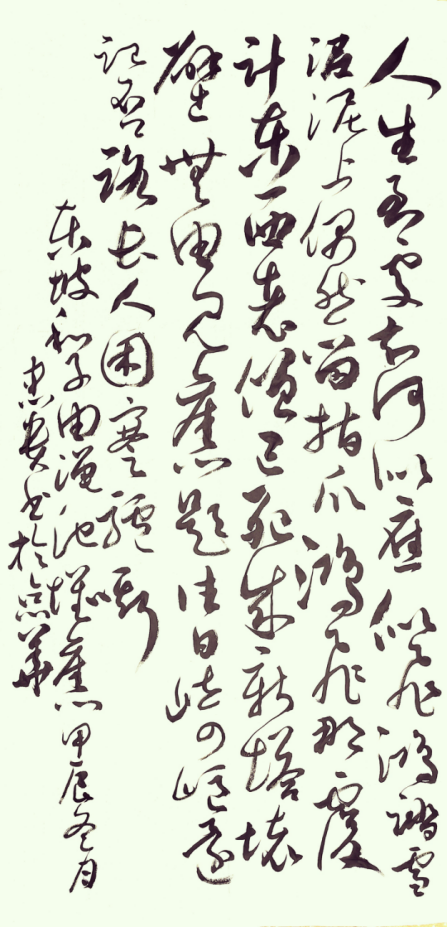 人生到處知何似應似飛鴻踏雪
泥泥上偶然留指爪鴻飛那復
計東西老僧已死成新塔壞
壁無由見舊題往日崎嶇還
記否路長人困蹇驢嘶
東坡和子由澠池懷舊甲辰冬月
書於京華